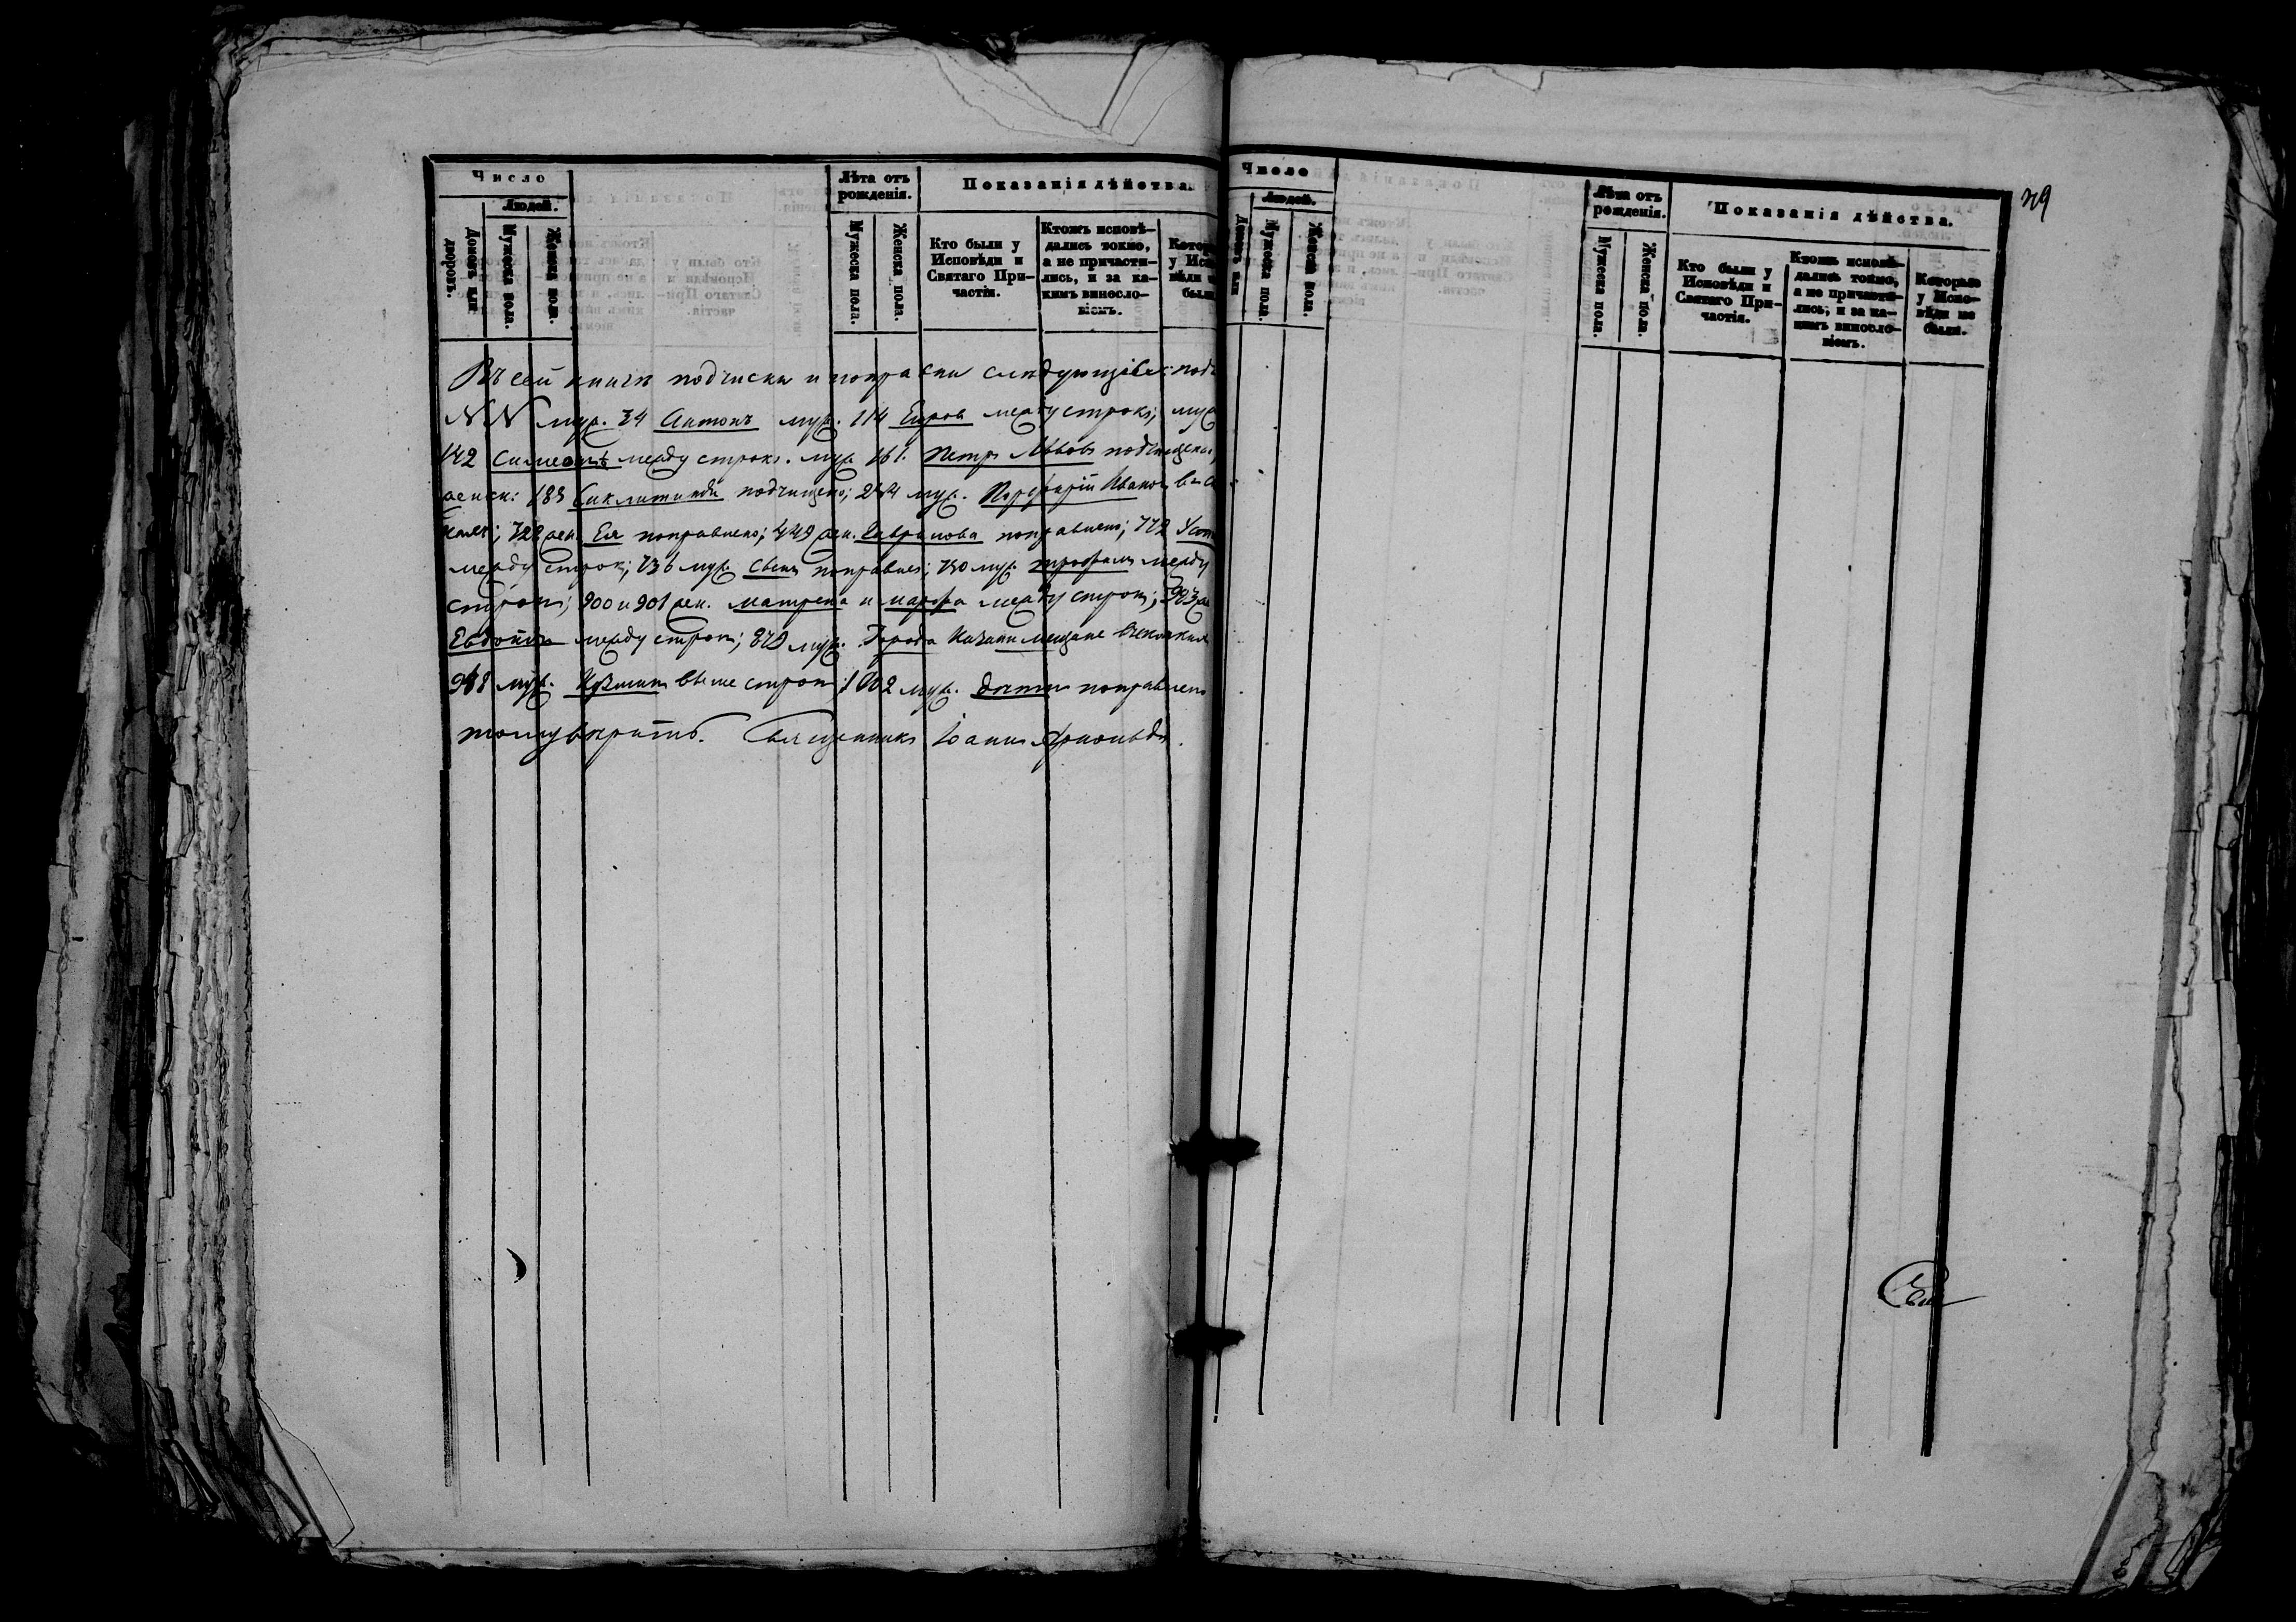 Число
Людей.
Домовъ или дворовъ.
Мужеска пола.
Женска пола.
Лѣта отъ рожденія.
Мужеска пола.
Женска пола.
Показанія дѣйства.
Кто были у
Исповѣди и
Святаго При-
частія.
Ктожъ исповѣ-
дались токмо,
а не причасти-
лись, и за ка-
кимъ винесло-
віемъ.
Котор
у Исп
вѣди н
были
Въ сей книгѣ подчистки и поправки слѣдующія: подч
NN муж. 34 Антонъ муж. 114 Егоров между строкъ; муж
142 Симеонъ между строкъ. муж. 161. Петръ Львовъ подчищено,
женск: 183 подчищено; 244 муж. Порфирій Иванов
728 жен. Ея поправлено; 449 жен. поправлено; 772
между строк; 736 муж. поправлен; 750 муж. между
строкъ; 900 и 901 жен. Матрена и Марфа между строкъ; 923
Евдокія между строкъ; 879 муж. Города Казани мещане
968 муж. Кузмин выше строкъ; 1002 муж. поправлено
тому вѣрить. Священникъ Іоаннъ Арнольдъ.
Число
Людей.
Домовъ или
Мужеска пола.
Женска пола.
Лѣта отъ
рожденія.
Мужеска пола.
Женска пола.
Показанія дѣйства.
Кто были у
Исповѣди и
Святаго При-
частія.
Ктожъ исповѣ-
дались токмо,
а не причасти-
лись, и за ка-
кимъ винесло-
віемъ.
Которые
у Испо-
вѣди не
были.